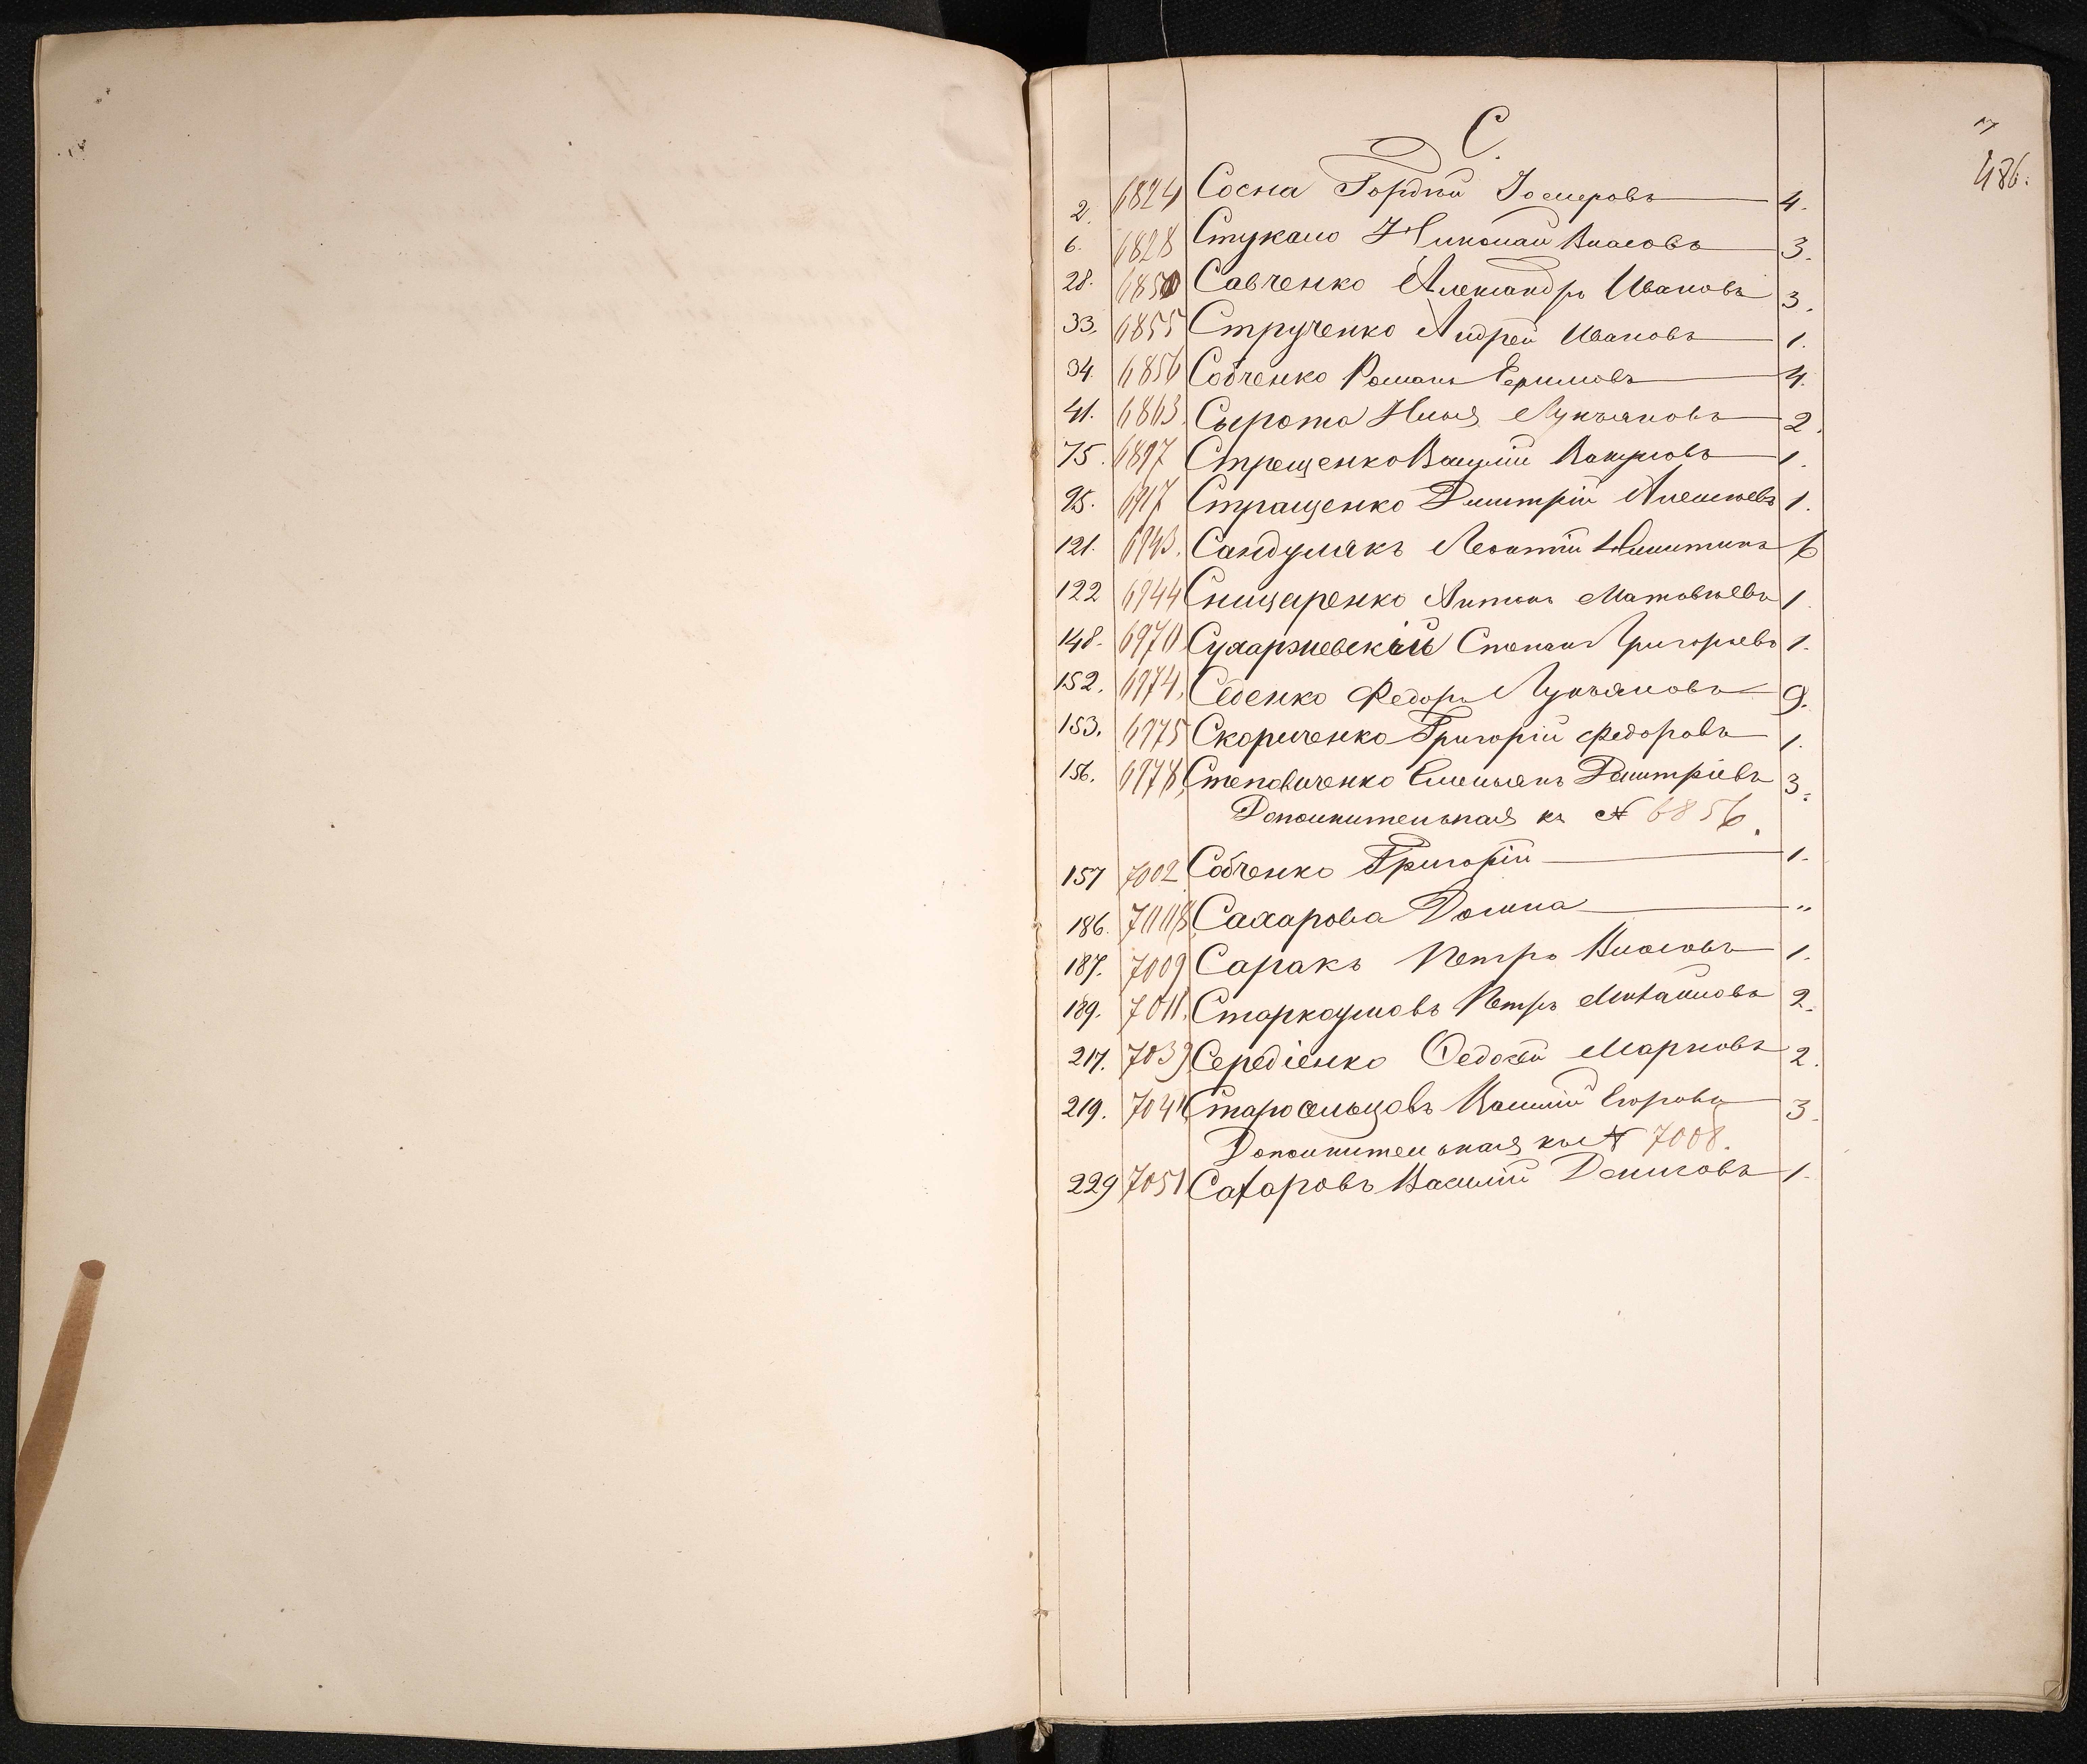 17
486.
С.
2. 6824 Сосна Гордѣй Іосиповъ 4.
6. 6828 Стукало Николай Власовъ 3.
28. 6850 Савченко Александръ Ивановъ 3.
33. 6855 Струченко Андрей Ивановъ 1.
34. 6856 Собченко Романъ 4.
41. 6863. Сырота Илья Лукьяновъ 2.
75. 6897 Стрещенко Василій Вакуловъ 1.
95. 6917 Стращенко Дмитрій Алексѣевъ 1.
121. 6943. Сандулякъ Леонтій Никитинъ 6
122 6944 Снищаренко Антонъ Матовѣевъ 1.
148. 6970 Сухаржевскій Степанъ Григорьевъ 1.
152. 6974. Седенко Федоръ Лукьяновъ 9.
153. 6975 Скориченко Григорій Федоровъ 1.
156. 6978. Степовиченко Емельянъ Дмитріевъ 3.
Дополнительная къ № 6856.
157 7002 Собченко Григорій 1.
186. 7008 Сахарова Домна „
187. 7009 Саракъ Петръ Власовъ 1.
189. 7011. Старкаумовъ Петръ Михайловъ 2.
217. 7039 Середіенко Федосѣй Марковъ 2.
219. 7041 Старосельцовъ Василій Егоровъ 3.
Дополнительная къ № 7008.
229 7051 Сахаровъ Василій Денисовъ 1.